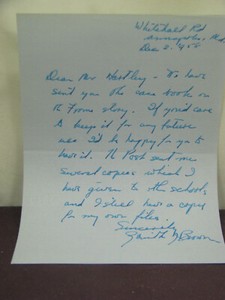 Whitehall Rd
Annapolis, Md
Dec 2, 458
Dear Mr Hartley - We have
sent you the same book on
the Forms story. If you'd care
to keep it for any future
use I'd be happy for you to
have it. The Post sent me
several copies which I
have given to the schools
and I still have a copy
for my own files.
Sincerely
Smith Brown